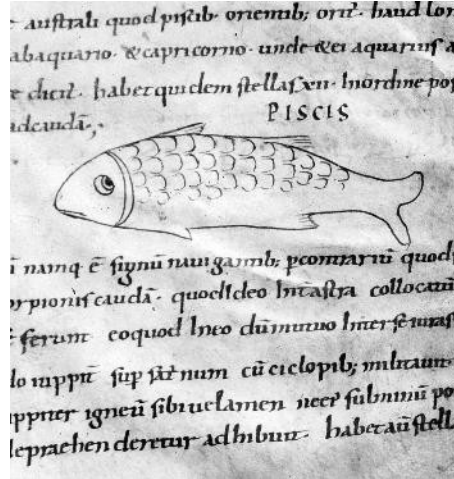 australi quod piscib; orientib; orit. haud lon
abaquario. & capricorno. unde & ei aquarius a
e dicit. habet quidem stellas xii. In ordine pos
adcaudā.
PISCIS
namq ē signū nauigantib; pcontrariū quod
orpionis caudā. quod ideo Int astra collocatū
ferunt eoquod In eo dū mutuo Inter se iuras
lo iuppit sup saturnum cū ciclopib; militaunt
uppiter igneū sibi uelamen
deprachenderetur adhibuit. habet aū stell